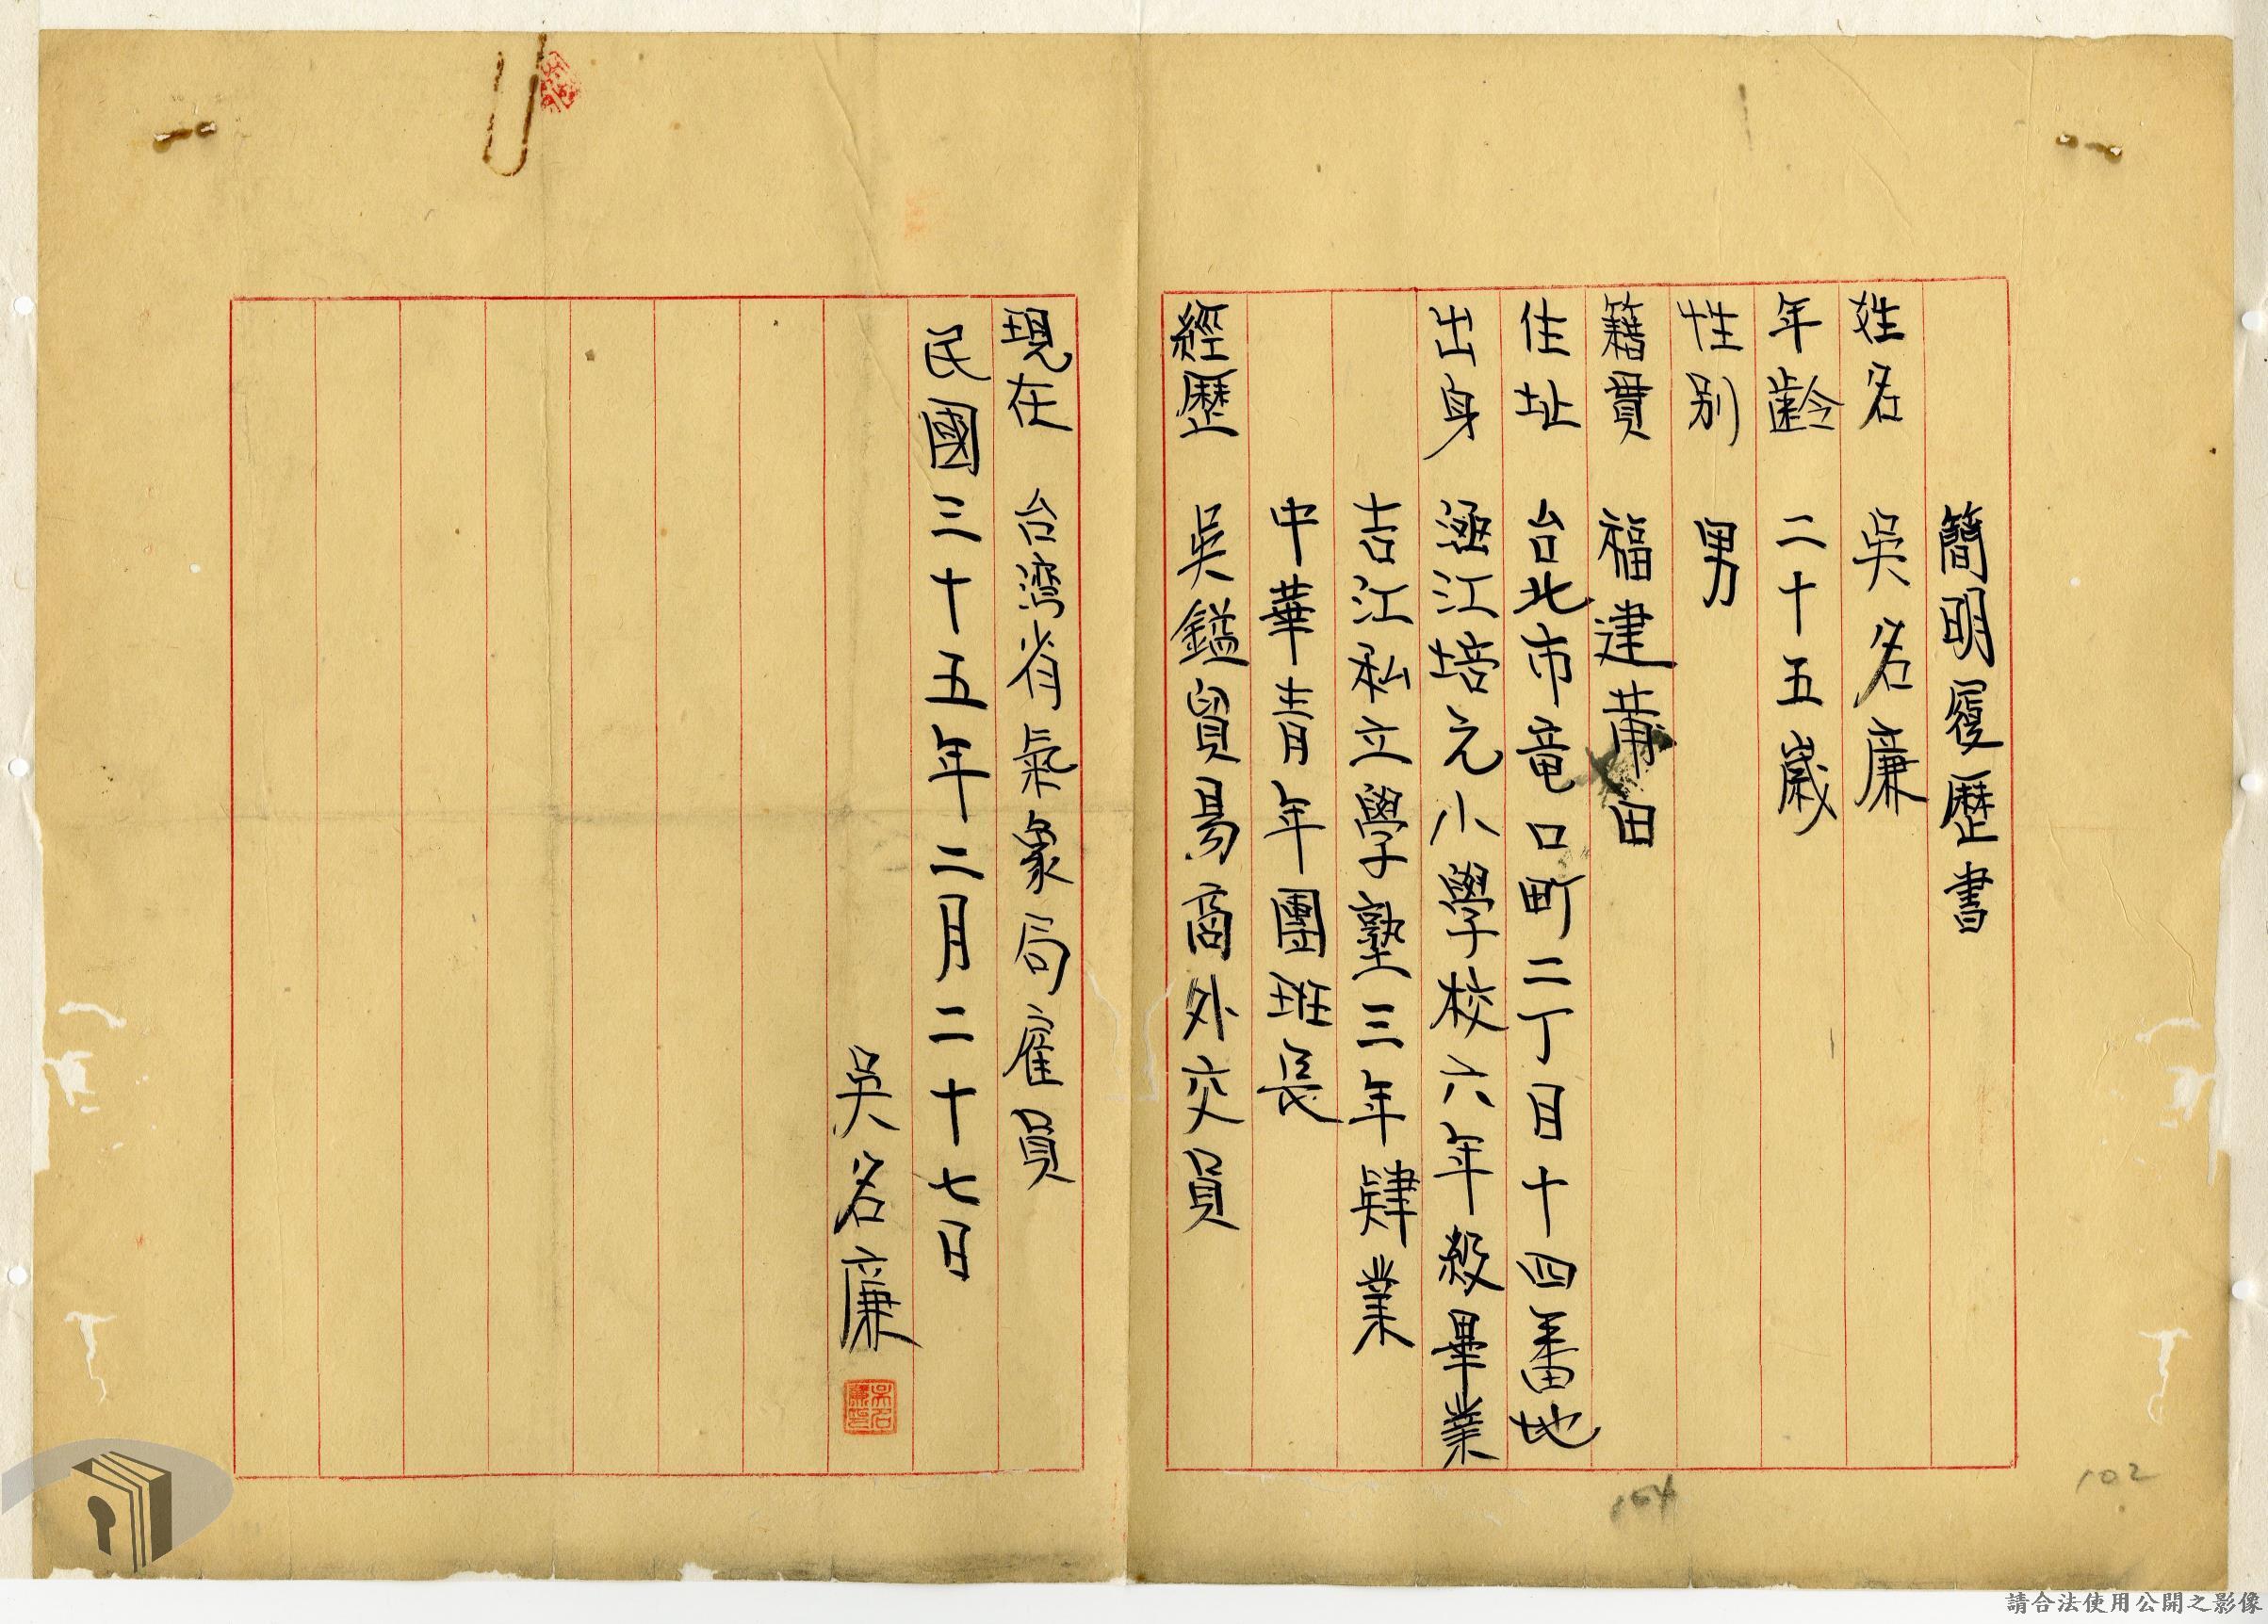 簡明履歷書
姓名 吳名廉
年齡 二十五歲
性別 男
籍貫 福建莆田
住址 台北市竜口町二丁目十四番地
出身 涵江培元小學校六年級畢業
吉江私立學塾三年肄業
中華青年團班長
經歷 吳鎰貿易商外交員
現在 台湾省氣象局雇員
民國三十五年二月二十七日
吳名廉
吳名廉印
102
164
請合法使用公開之影像